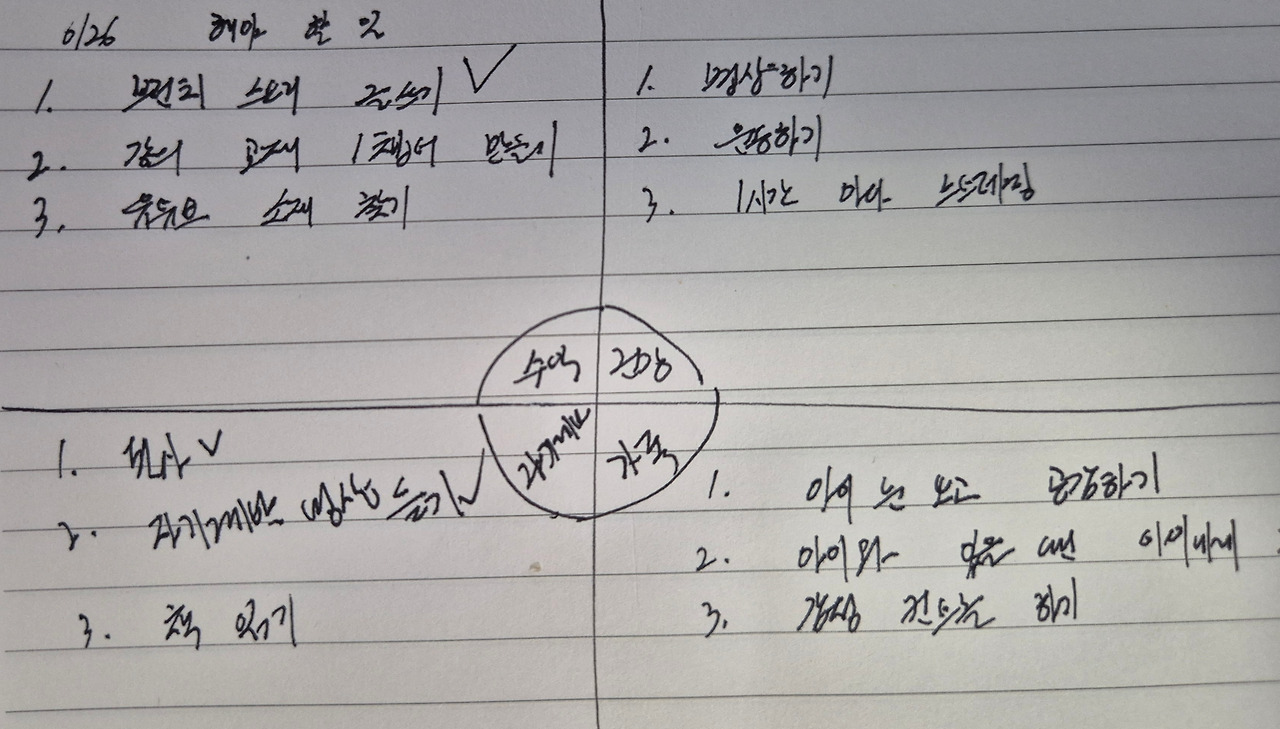 6/26 해야 할 일
1. 브런치 스토리 글쓰기 ✓
2. 강의 교재 1챕터 만들기
3. 유튜브 소재 찾기
1. 명상하기
2. 운동하기
3. 1시간 마다 스트레칭
수익 건강
자기계발 가족
1. 필사 ✓
2. 자기계발 영상 듣기 ✓
3. 책 읽기
1. 아이 눈 보고 공감하기
2. 아이와 있을 땐 아이에게
3. 감정 컨트롤 하기